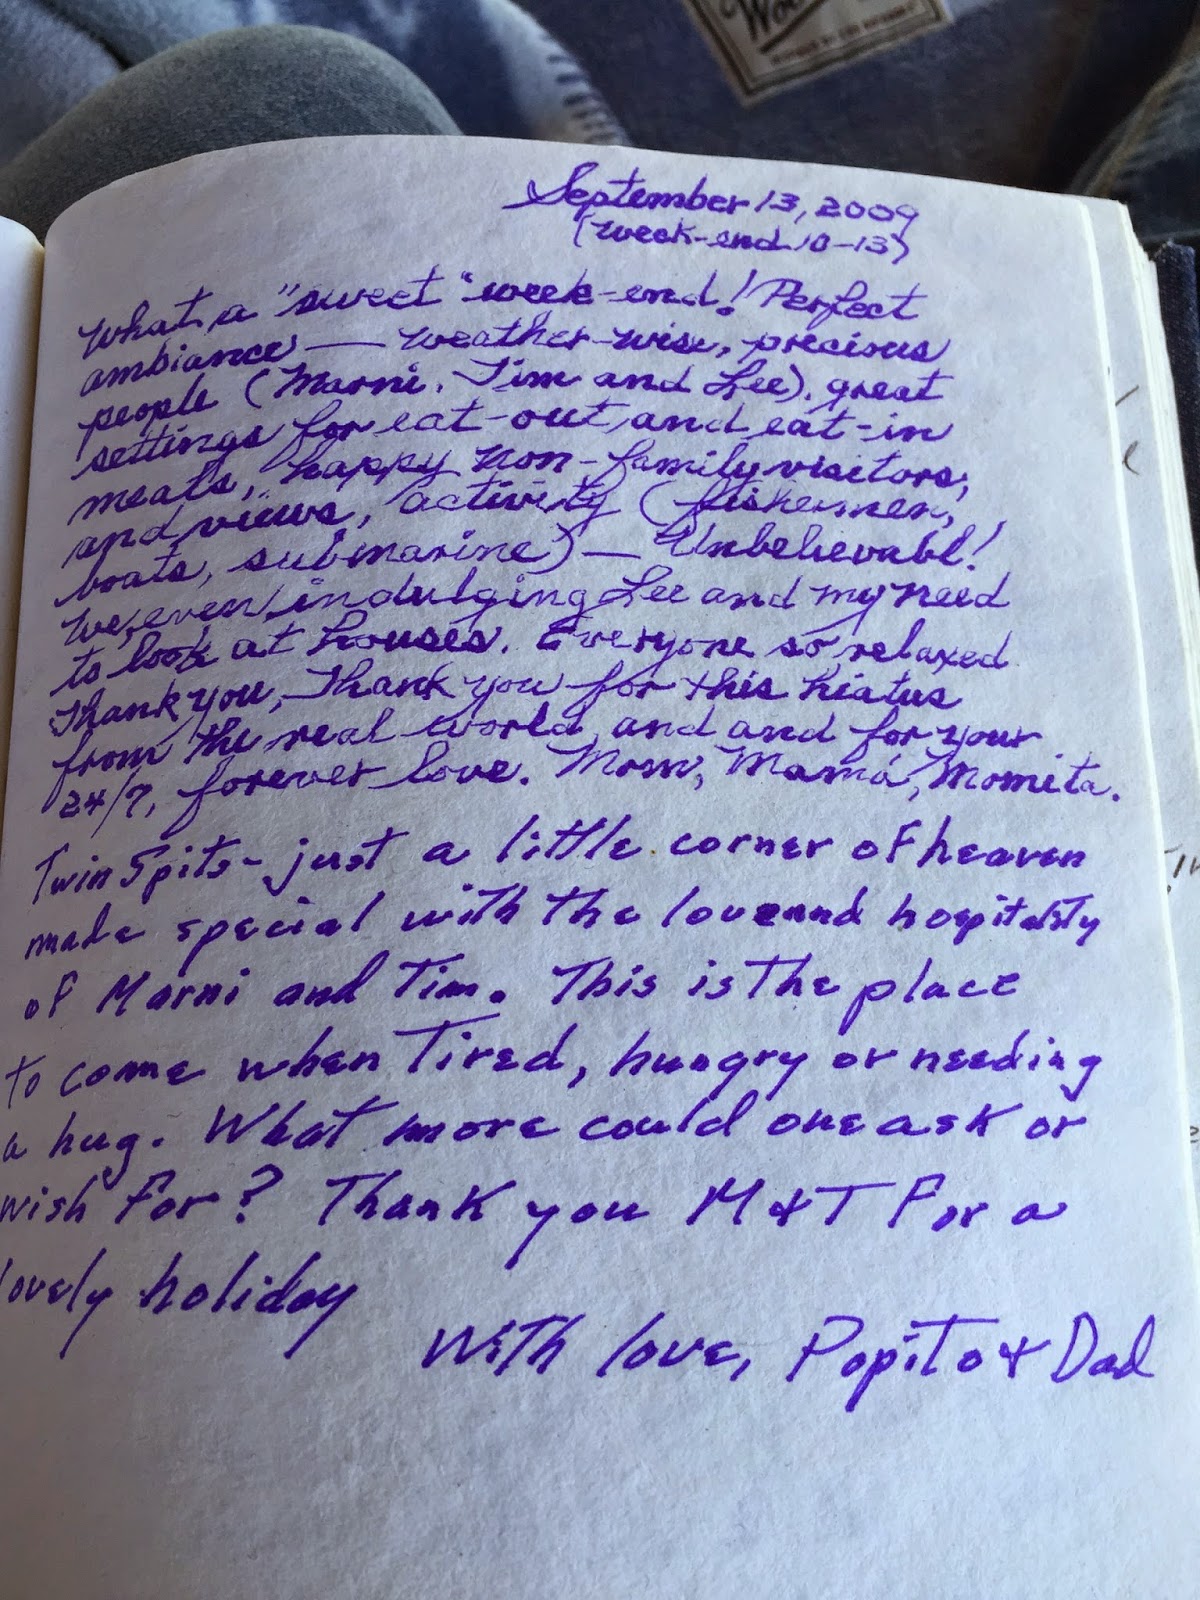 September 13, 2009
(week-end 10-13)
What a "sweet" week-end! Perfect
ambiance — weather-wise, precious
people (Marni, Tim and Lee), great
settings for eat-out and eat-in
meals, happy non-family visitors,
and views, activity (fishermen,
boats, submarine) — Unbelievabl!
We, even, indulging Lee and my need
to look at houses. Everyone so relaxed
Thank you, Thank you for this hiatus
from the real world, and and for your
24/7, forever love. Mom, Mamá, Momita.
Twin Spits - just a little corner of heaven
made special with the love and hospitality
of Marni and Tim. This is the place
to come when Tired, hungry or needing
a hug. What more could one ask or
wish for? Thank you M & T For a
lovely holiday
With love, Popito & Dad